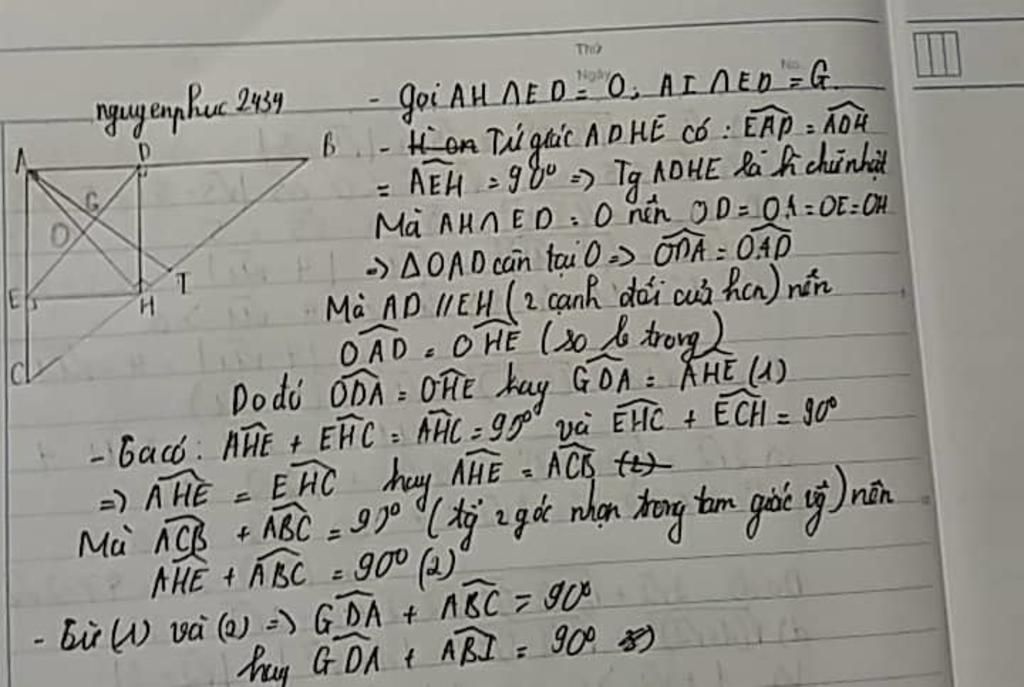 Thứ
Ngày No.
nguyenphuc 2434
- Gọi AH ∩ ED = O, AI ∩ ED = G.
- Tứ giác ADHE có : EAD = ADH
= AEH = 90° => Tg ADHE là h chữ nhật
Mà AH ∩ ED = O nên OD = OA = OE = OH
=> ΔOAD cân tại O => ODA = OAD
Mà AD // EH ( 2 cạnh đối của hcn ) nên
OAD = OHE ( so le trong )
Do đó ODA = OHE hay GDA = AHE (1)
- Ta có : AHE + EHC = AHC = 90° và EHC + ECH = 90°
=> AHE = EHC hay AHE = ACB (2)
Mà ACB + ABC = 90° ( tg 2 góc nhọn trong tam giác vg ) nên
AHE + ABC = 90° (2)
- Từ (1) và (2) => GDA + ABC = 90°
hay GDA + ABI = 90°
A D B
G
O
E H I
C